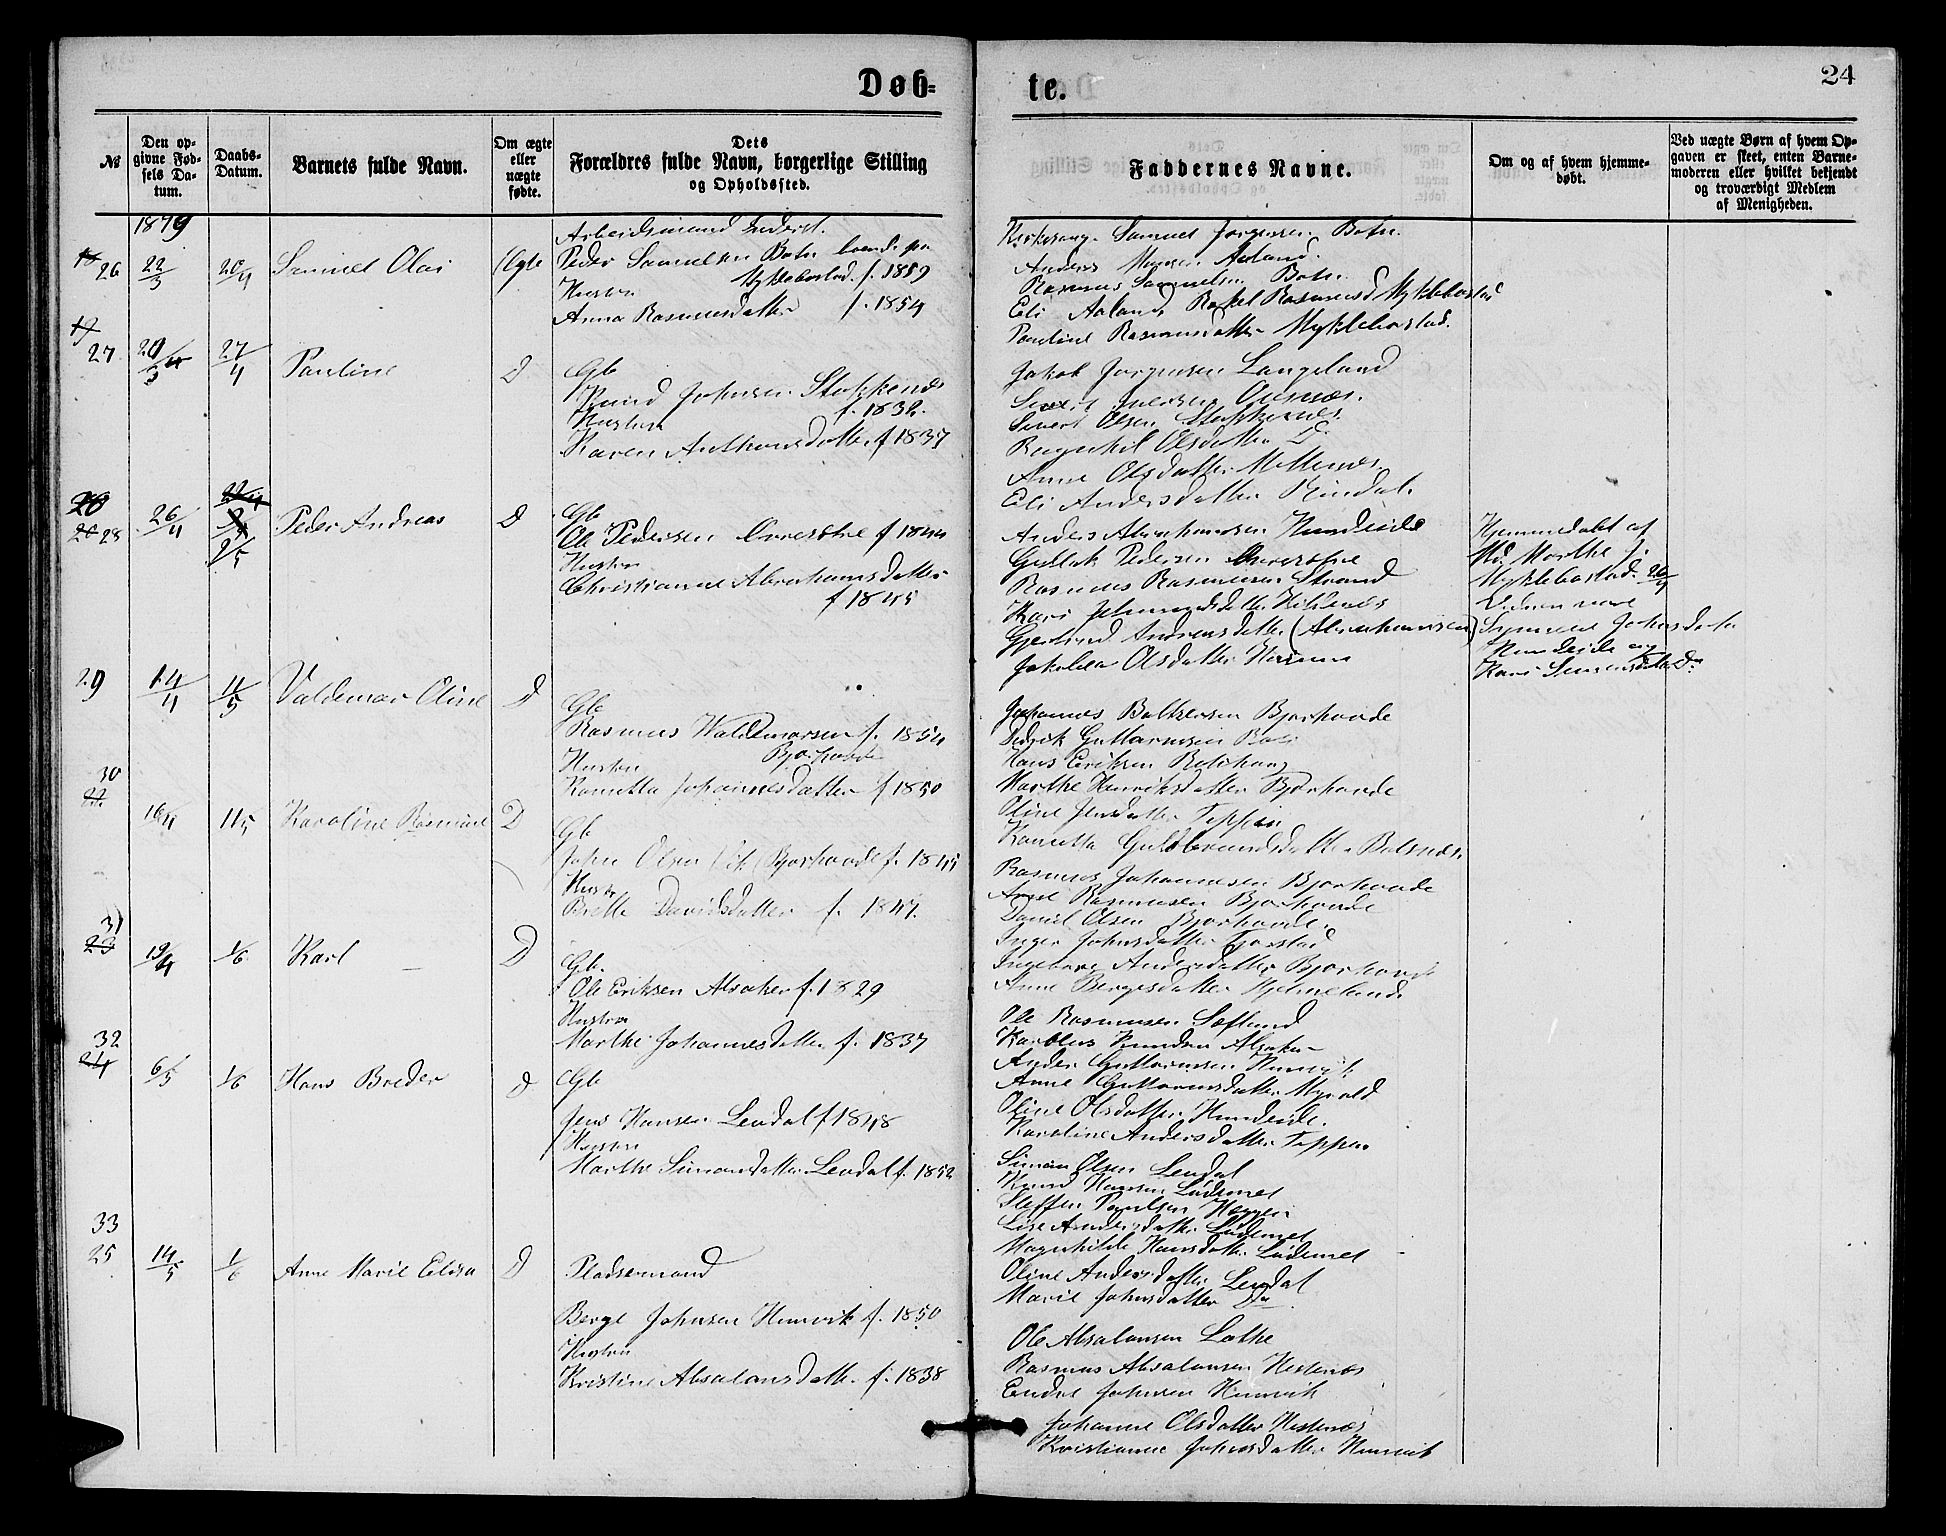 Døb-
№
Den op-
givne Fød-
sels Da-
tum.
Daabs-
Datum.
Barnets fulde Navn.
Om ægte
eller
uægte
fødte.
Dets
Forældres fulde Navn, borgerlige Stilling
og Opholdssted.
1879
26 22/3 20/4 Samuel Olai Ægte
Arbeidsmand Inderst.
Peder Samuelsen Botn boende på
Myklebostad. f. 1859
Hustru
Anna Rasmusdatter f. 1854
19
27 27/4 Pauline D
Gb
Knud Johnsen Stokkenes
f. 1832.
Hustru
Karen Anthonsdatter f 1837
28 26/4 2/5 Peder Andreas D
Gb
Ole Pedersen f 1844
Hustru
Christianne Abrahamsdatter
f 1845
29 14/4 11/5 Valdemar Oline D
Gb
Rasmus Waldemarsen f. 1854
Bjorhovde
Hustru
Kanutta Johannesdatter f 1850
30
16/4 11/5 Karoline Rasmine D
Gb
John Olsen (Bjorhovde f. 1845
Hustr
Brette Davidsdatter f. 1847.
31
23
19/4 1/6 Karl D
Gb.
Ole Eriksen Alsaker f. 1829
Hustru
Marthe Johannesdatter f. 1837
32
24
6/5 1/6 Hans Breder D
Gb
Jens Hansen Levdal f 1848
Hustru
Marthe Simonsdatter Levdal f. 1852
33
25 14/5 1/6 Anne Marie Elisa D
Pladsemand
Berge Johnsen Hunvik f. 1850
Hustru
Kristine Absalonsdatter f. 1838
te.
24
Faddernes Navne.
Om og af hvem hjemme-
døbt.
Ved uægte Børn af hvem Op-
gaven er skeet, enten Barne-
moderen eller hvilket bekjendt
og troværdigt Medlem
af Menigheden.
Kirkesang. Samuel Jørgensen Botn.
Anders Hansen Aaland.
Rasmus Samuelsen Botn.
Eli Aaland Rakel Rasmusd Myklebostad
Pauline Rasmusdatter Myklebostad.
Jakob Jørgensen Langeland
Sivert Olsen Stokkenes.
Ragnhil Olsdatter Do
Anne Olsdatter
Eli Andersdatter Rindal.
Anders Abrahamsen Hundeide
Gullak Pedersen
Rasmus Rasmusen Strand
Kari
Gjertrud Andreasdatter (Abrahamsen)
Jakobea Olsdatter
Hjemmedøbt af
Md. Marthe J.
Myklebostad. 26/4
Vidner vare
Synneve Johnsdatter
Hundeide og
Kari Do
Johannes Baltsersen Bjorhovde
Didrik Guttormsen
Hans Eriksen
Marthe Henriksdatter Bjorhovde
Oline Jensdatter
Kanutta Guldbrandsdatter
Rasmus Johannesen Bjorhovde
Arne Rasmusen Bjorhovde
Daniel Olsen Bjorhovde.
Inger Johnsdatter
Ingeborg Andersdatter Bjorhovde
Anne Bergesdatter Hjelmeland.
Ole Rasmusen Sætland
Karolus Knudsen Alsaker
Anders Guttormsen
Anne Guttormsdatter Myvold
Oline Olsdatter Hundeide.
Karoline Andersdatter
Simon Olsen Levdal
Knud Hansen Lødemel
Steffen Paulsen Heggen
Lise Andersdatter Lødemel
Magnhilde Hansdatter Lødemel
Oline Andersdatter Levdal
Marie Johnsdatter Do
Ole Absalonsen Lothe
Rasmus Absalonsen Hestenes
Endre Johnsen Hunvik
Johanne Olsdatter Hestenes
Kristianne Johnsdatter Hunvik